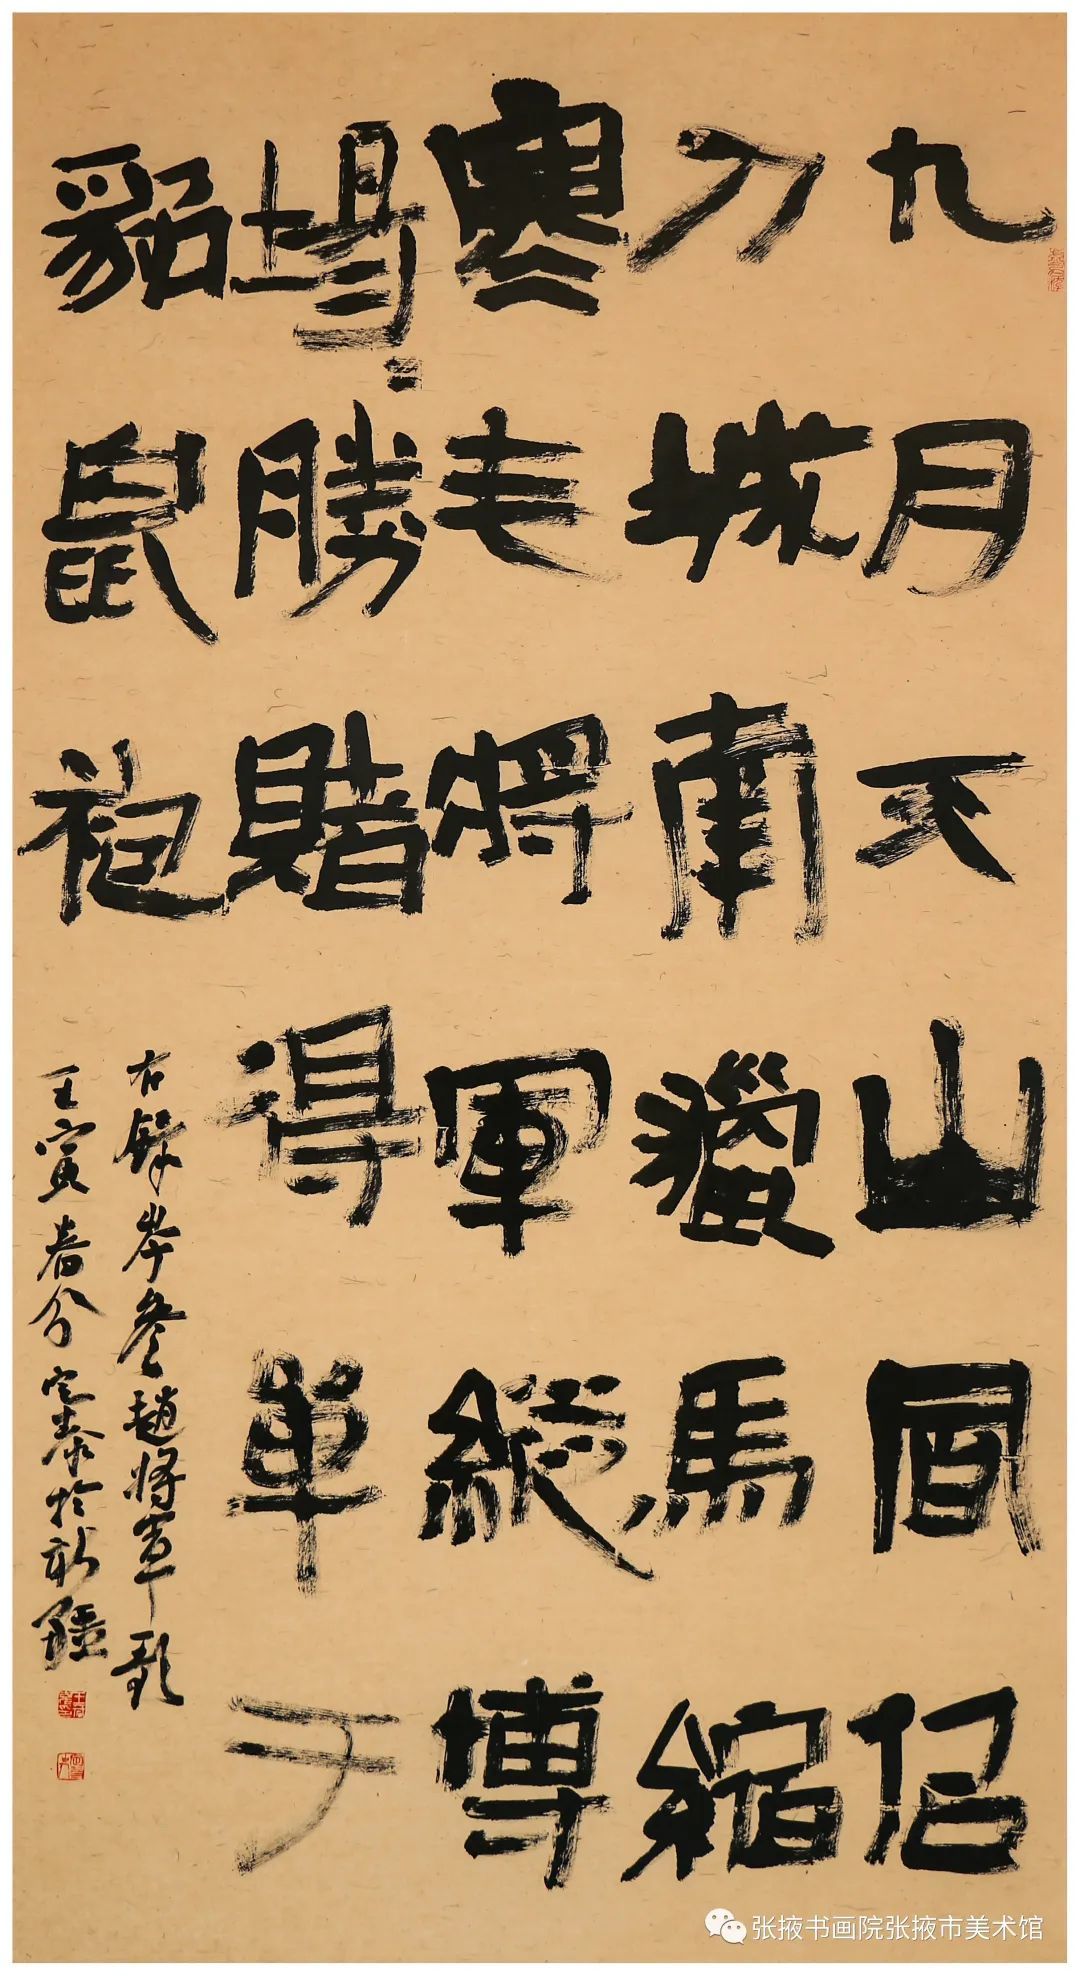 九月天山凬佀
刀城南獵馬縮
寒毛將軍縱博
場〻勝賭得單于
貂鼠袍
右錄岑參趙將軍歌
壬寅春分定泰於新疆
张掖书画院张掖市美术馆